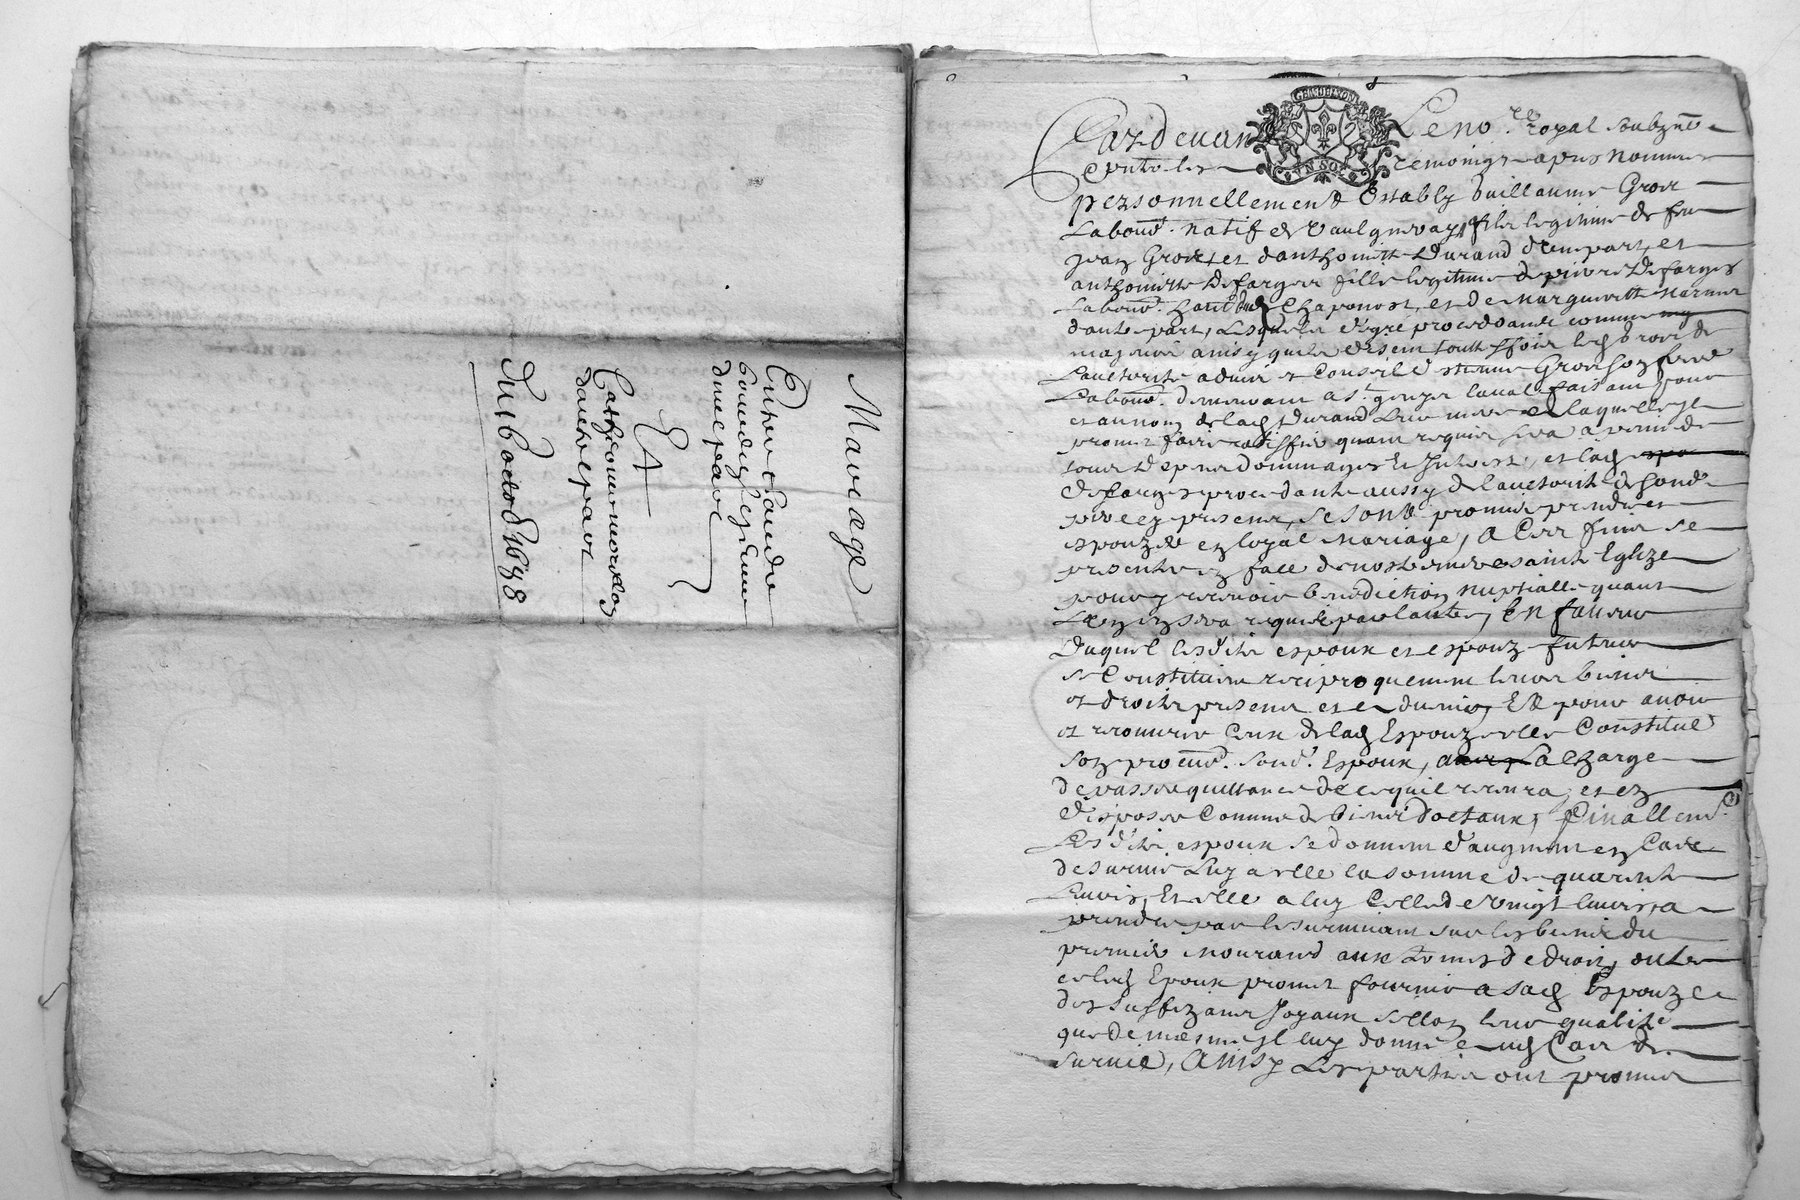 Mariage
Entre Claude
d'une part
ET
Catherine
d'autre part
du 16 octob 1698
GEN DE LYON
Pardevan Le no.re royal soubzné
et entre les témoings apres nommes
personnellement Estably Guillaume Gros
Labour. natif de fils legitime de feu
Jean Gros, et d'anthoinette Durand d'une part, et
anthoinette Defarges fille legitime de pierre Defarges
Labour. Chaponost, et de Marguerite
d'autre part, Lesquels de gré proceddants comme
Lauctorité advis et Conseil d'estienne Gros son frere
Labour. demeurant a St. genys laval faisant pour
et au nom de lad Durand leur mere laquelle il
promet faire ratiffier quant requis sera a peine de
tous Despens Dommages et Interest, et lad
Defarges procedante aussy de lauctorité de sond.
pere ey present, se sont promis prendre et
espouzer en loyal Mariage, A Ces fins se
presenter en face de nostre mere sainte Eglize
pour y recevoir benediction nuptialle quant
Lun en sera requis par lautre, En faveur
Duquel lesdits espoux et espouze futeurs
se Constituent reciproquement leurs biens
et droits presens et advenir, Et pour avoir
et recouvrer Ceux de lad Espouze elle Constitue
son procur. sond. Espoux, a La Charge
de passer quittance de ce quil recevra, et en
Disposer Comme de biens Doctaux, Finallem.t
Lesdits espoux se donnent d'augment en Cas
de survie Luy a elle la somme de quarente
Livres, Et elle a luy Celle de vingt livres, a
prendre par le survivant sur les biens du
premier mourand aux termes de droit, outre
ce led Epoux promet fournir a sad Espouze
des suffizans Joyaux sellon leur qualité
que de mesme il luy donne aud Cas de
survie, Ainsy Les parties ont promis